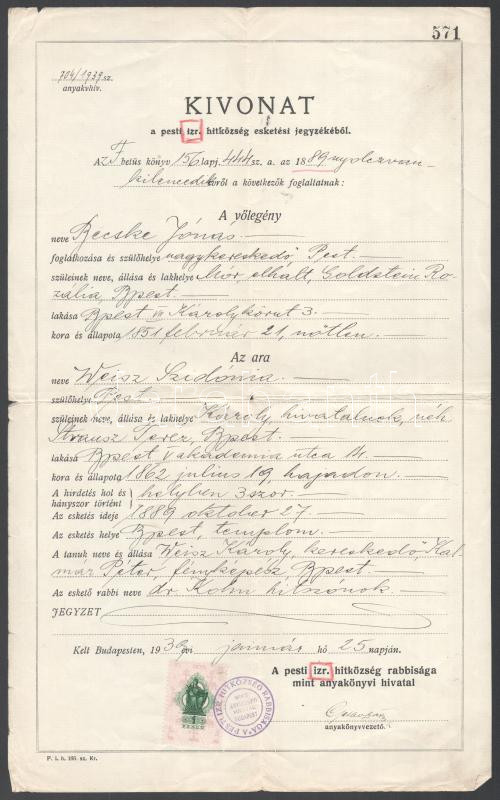 571
704/1939 sz.
anyakvhiv.
KIVONAT
a pesti izr. hitközség esketési jegyzékéből.
Az F betüs könyv 156 lapj. 444 sz. a. az 1889 nyolczvan-
kilencedik évről a következők foglaltatnak:
A vőlegény
neve Recske Jónás
foglalkozása és szülőhelye nagykereskedő, Pest.
szüleinek neve, állása és lakhelye Mór, elhált, Goldstein Ro-
zália, Bpest.
lakása Bpest VII Károly körut 3.
kora és állapota 1851 február 21, nőtlen.
Az ara
neve Weisz Szidónia.
szülőhelye Pest
szüleinek neve, állása és lakhelye Károly, hivatalnok, néh.
Strausz Terez, Bpest.
lakása Bpest V akadémia utca 14.
kora és állapota 1862 július 19, hajadon.
A hirdetés hol és
hányszor történt helyben 3szor.
Az esketés ideje 1889 október 27.
Az esketés helye Bpest, templom.
A tanuk neve és állása Weisz Károly, kereskedő, Kal-
már Péter fényképész Bpest
Az eskető rabbi neve dr. Kohn hitszónok.
JEGYZET
Kelt Budapesten, 1939 évi január hó 25 napján.
A pesti izr. hitközség rabbisága
mint anyakönyvi hivatal
anyakönyvvezető.
1
PENGŐ
A PESTI IZR. HITKÖZSÉG RABBISÁGA
MINT
ANYAKÖNYVI
HIVATAL
BUDAPEST
P. i. h. 155. sz. Kr.